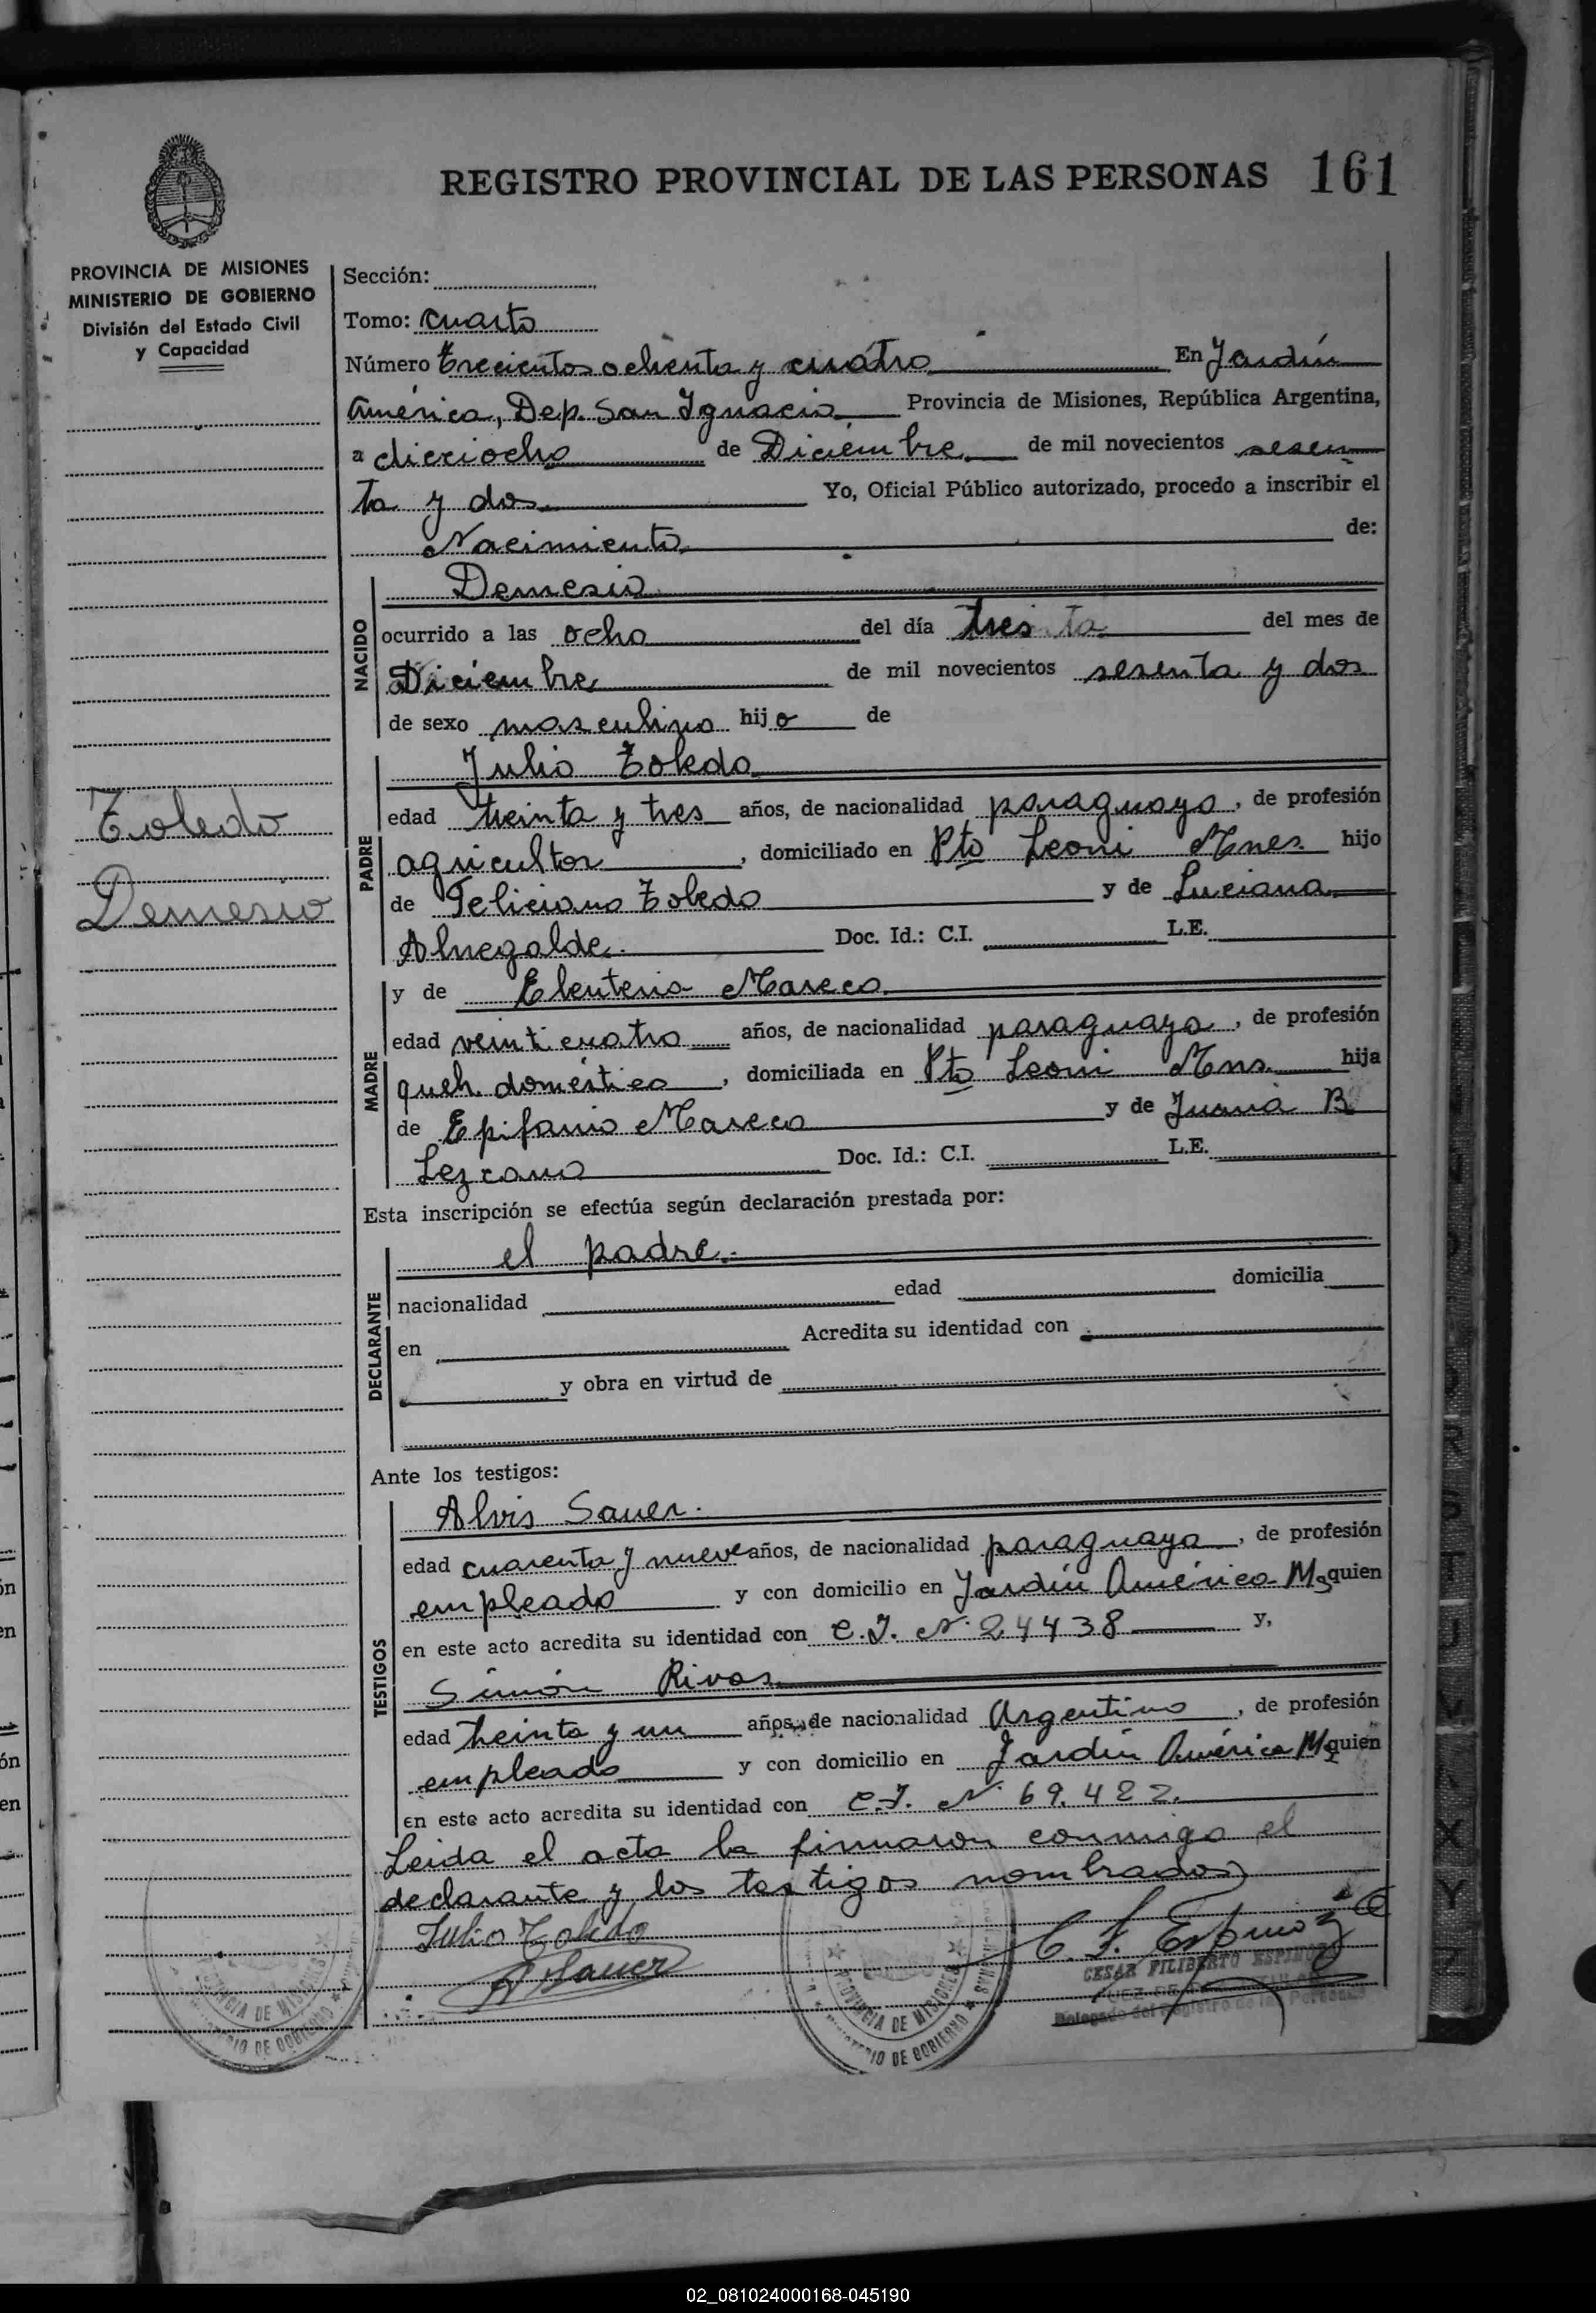 REGISTRO PROVINCIAL DE LAS PERSONAS 161
PROVINCIA DE MISIONES
MINISTERIO DE GOBIERNO
División del Estado Civil
y Capacidad
Toledo
Demesio
Sección:
Tomo: cuarto
Número trecientos ochenta y cuatro En Jardín
América, Dep. San Ignacio Provincia de Misiones, República Argentina,
a dieciocho de Diciembre de mil novecientos sesen
ta y dos Yo, Oficial Público autorizado, procedo a inscribir el
Nacimiento de:
NACIDO
Demesio
ocurrido a las ocho del día tres del mes de
Diciembre de mil novecientos sesenta y dos
de sexo masculino hijo de
PADRE
Julio Toledo
edad treinta y tres años, de nacionalidad paraguaya, de profesión
agricultor, domiciliado en Pto Leoni Mnes. hijo
de Feliciano Toledo y de Luciana
Doc. Id.: C.I. L.E.
MADRE
y de Eleuteria Mareco
edad veinticuatro años, de nacionalidad paraguaya, de profesión
queh. domésticos, domiciliada en Pto Leoni Mns. hija
de Epifanio Mareco y de Juana B
Lezcano Doc. Id.: C.I. L.E.
Esta inscripción se efectúa según declaración prestada por:
DECLARANTE
el padre.
nacionalidad edad domicilia
en Acredita su identidad con
y obra en virtud de
Ante los testigos:
TESTIGOS
Alvis Sauer.
edad cuarenta y nueve años, de nacionalidad paraguaya, de profesión
empleado y con domicilio en Jardín América Ms quien
en este acto acredita su identidad con C.I. Nº 24438 y,
Simón Rivas
edad treinta y un años, de nacionalidad Argentino, de profesión
empleado y con domicilio en Jardín América Ms quien
en este acto acredita su identidad con C.I. Nº 69.482.
Leida el acta la firmaron conmigo el
declarante y los testigos nombrados
Julio Toledo
A Sauer
C. F. Espinoza
CESAR FILIBERTO ESPINOZA
JUEZ DE PAZ
Delegado del Registro de las Personas
PROVINCIA DE MISIONES
MINISTERIO DE GOBIERNO
PROVINCIA DE MISIONES
MINISTERIO DE GOBIERNO
02_081024000168-045190